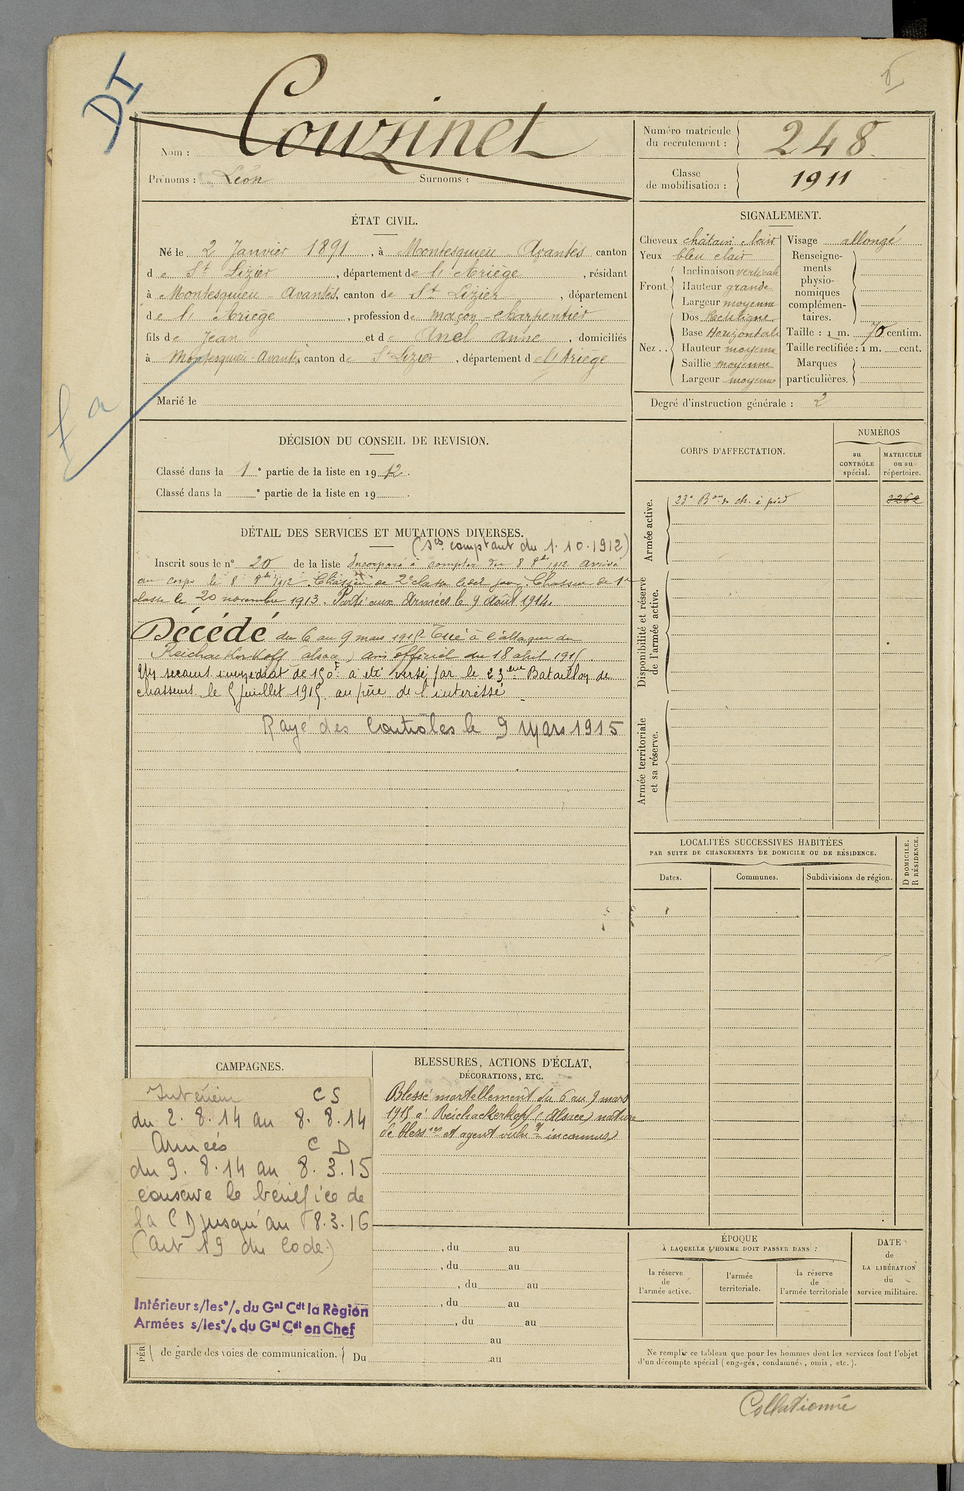 DI
Nom : Couzinet
Prénoms : Léon Surnoms :
Numéro matricule
du recrutement : 248
Classe
de mobilisation : 1911
ÉTAT CIVIL.
Né le 2 Janvier 1891, à Montesquieu Avantès canton
de St Lizier, département de l'Ariège, résidant
à Montesquieu-Avantès, canton de St Lizier, département
de l'Ariège, profession de maçon-charpentier
fils de Jean et de Anel Anne, domiciliés
à Montesquieu-Avantès, canton de St Lizier, département de l'Ariège
Marié le
fa
SIGNALEMENT.
Cheveux châtain clair
Yeux bleu clair
Front. Inclinaison verticale
Hauteur grande
Largeur moyenne
Nez .. Dos Rectiligne
Base Horizontale
Hauteur moyenne
Saillie moyenne
Largeur moyenne
Visage allongé
Renseigne-
ments
physio-
nomiques
complémen-
taires.
Taille : 1 m. 70 centim.
Taille rectifiée : 1 m. cent.
Marques
particulières.
Degré d'instruction générale : 2
DÉCISION DU CONSEIL DE REVISION.
Classé dans la 1e partie de la liste en 1912.
Classé dans la e partie de la liste en 19 .
CORPS D'AFFECTATION.
NUMÉROS
au
CONTRÔLE
spécial.
MATRICULE
ou au
répertoire.
Armée active.
23e Bon de ch. à pied 2262
Disponibilité et réserve
de l'armée active.
Armée territoriale
et sa réserve.
DÉTAIL DES SERVICES ET MUTATIONS DIVERSES.
(Ses comptant du 1.10.1912)
Inscrit sous le n° 20 de la liste Incorporé à compter du 8 8bre 1912 arrivé
au corps le 8 8bre 1912. Chasseur de 2e classe ledit jour. Chasseur de 1re
classe le 20 novembre 1913. Parti aux Armées le 9 Août 1914.
Décédé du 6 au 9 mars 1915 Tué à l'attaque du
Reichackerkopf (alsace) avis officiel du 18 avril 1915
Un secours immédiat de 150f a été versé par le 23ème Bataillon de
chasseurs le 5 juillet 1915 au père de l'intéressé
Rayé des Contrôles le 9 Mars 1915
LOCALITÉS SUCCESSIVES HABITÉES
PAR SUITE DE CHANGEMENTS DE DOMICILE OU DE RÉSIDENCE.
Dates. Communes. Subdivisions de région.
D DOMICILE.
R RÉSIDENCE.
CAMPAGNES.
Intérieur CS
du 2.8.14 au 8.8.14
Armées CD
du 9.8.14 au 8.3.15
conserve le bénéfice de
la CD jusqu'au 8.3.16
(art 19 du Code)
Intérieur s/les o/. du Gal Cdt la Région
Armées s/les o/. du Gal Cdt en Chef
PÉR
de garde des voies de communication. Du au
BLESSURES, ACTIONS D'ÉCLAT,
DÉCORATIONS, ETC.
Blessé mortellement du 6 au 9 mars
1915 à Reichackerkopf (Alsace) nature
de blessres et agent vulnt inconnus
, du au
, du au
, du au
, du au
, du au
au
ÉPOQUE
À LAQUELLE L'HOMME DOIT PASSER DANS :
la réserve
de
l'armée active.
l'armée
territoriale.
la réserve
de
l'armée territoriale
DATE
de
LA LIBÉRATION
du
service militaire.
Ne remplir ce tableau que pour les hommes dont les services font l'objet
d'un décompte spécial (engagés, condamnés, omis, etc.).
Collationné